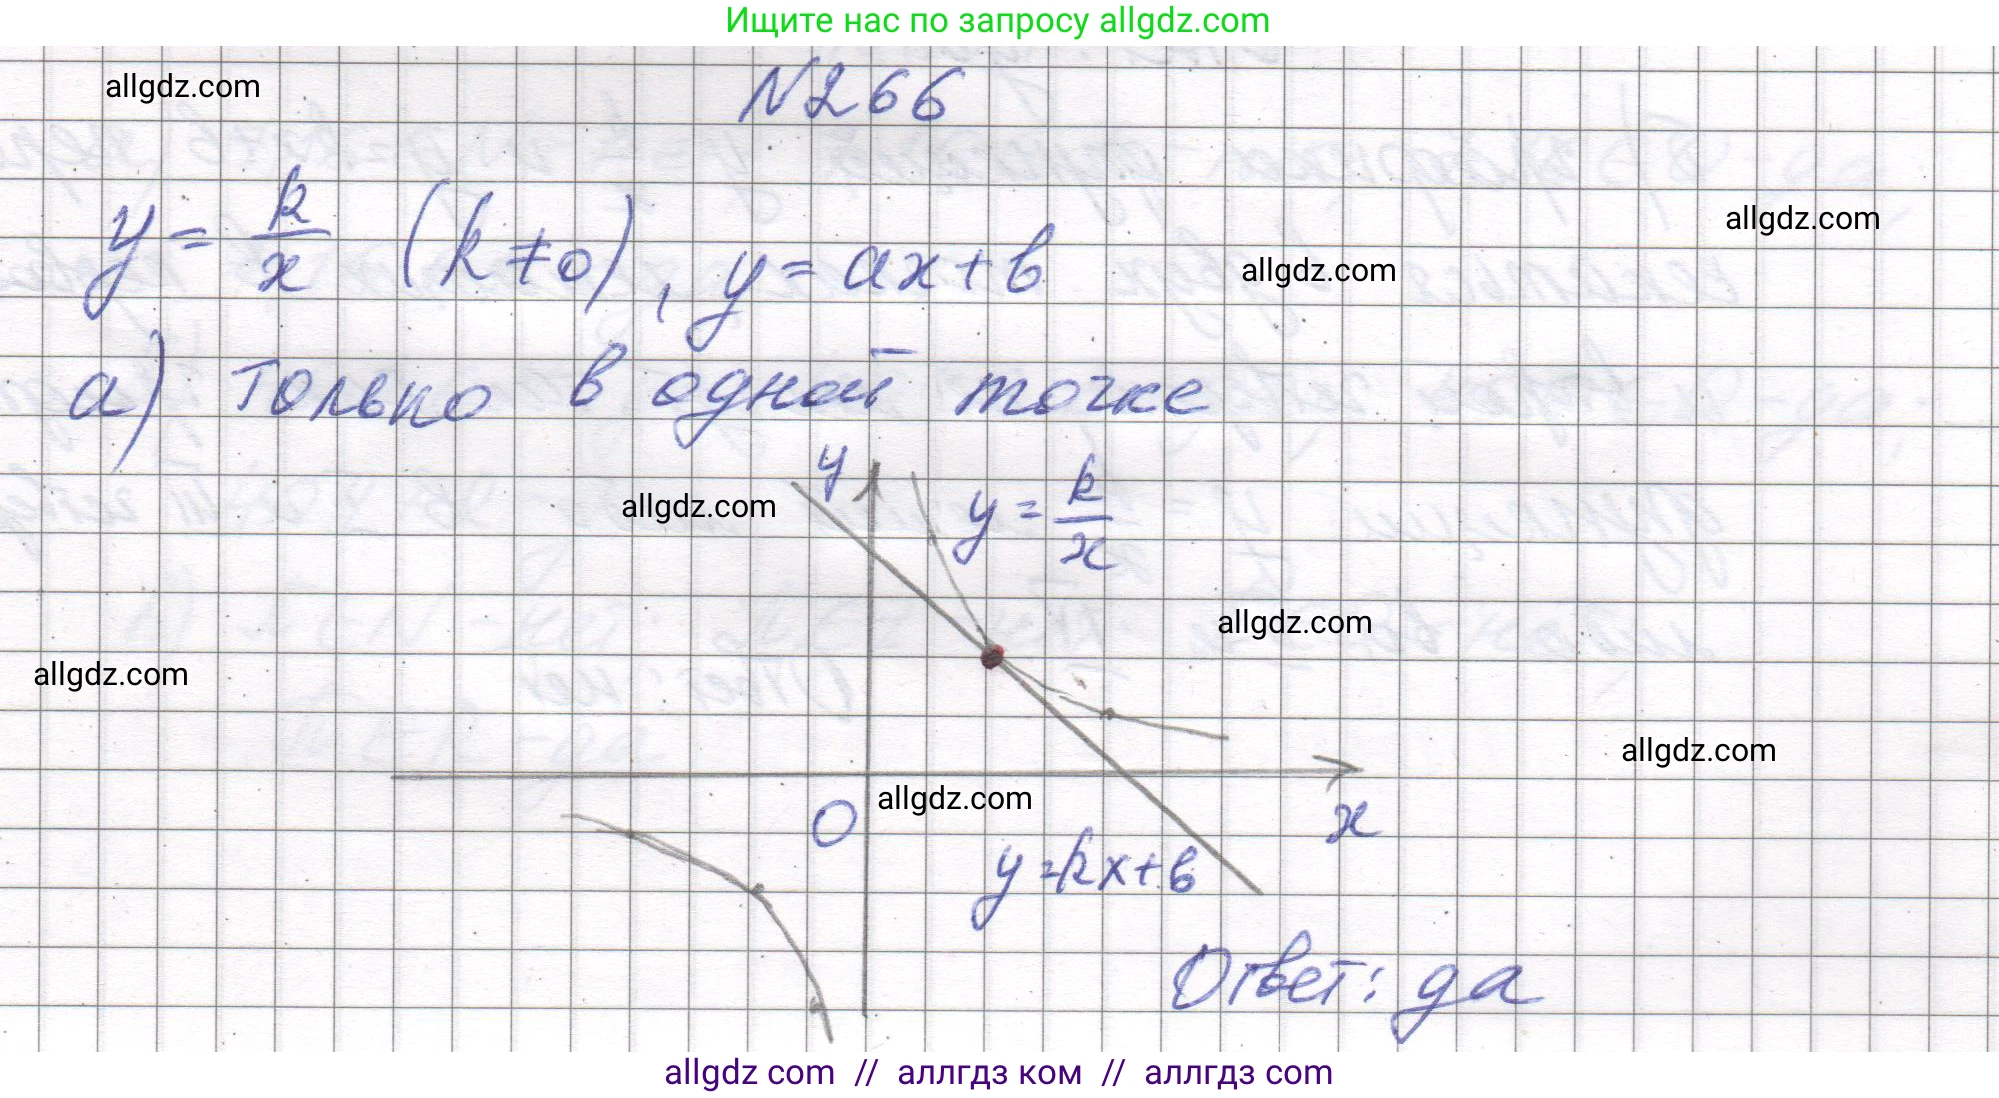 Ищите нас по запросу allgdz.com
allgdz.com
N266
allgdz.com
y = k/x (k ≠ 0), y = ax + b
allgdz.com
а) только в одной точке
y
y = k/x
allgdz.com
allgdz.com
allgdz.com
allgdz.com
O
allgdz.com
x
y = kx + b
Ответ: да
allgdz com // аллгдз ком // аллгдз com